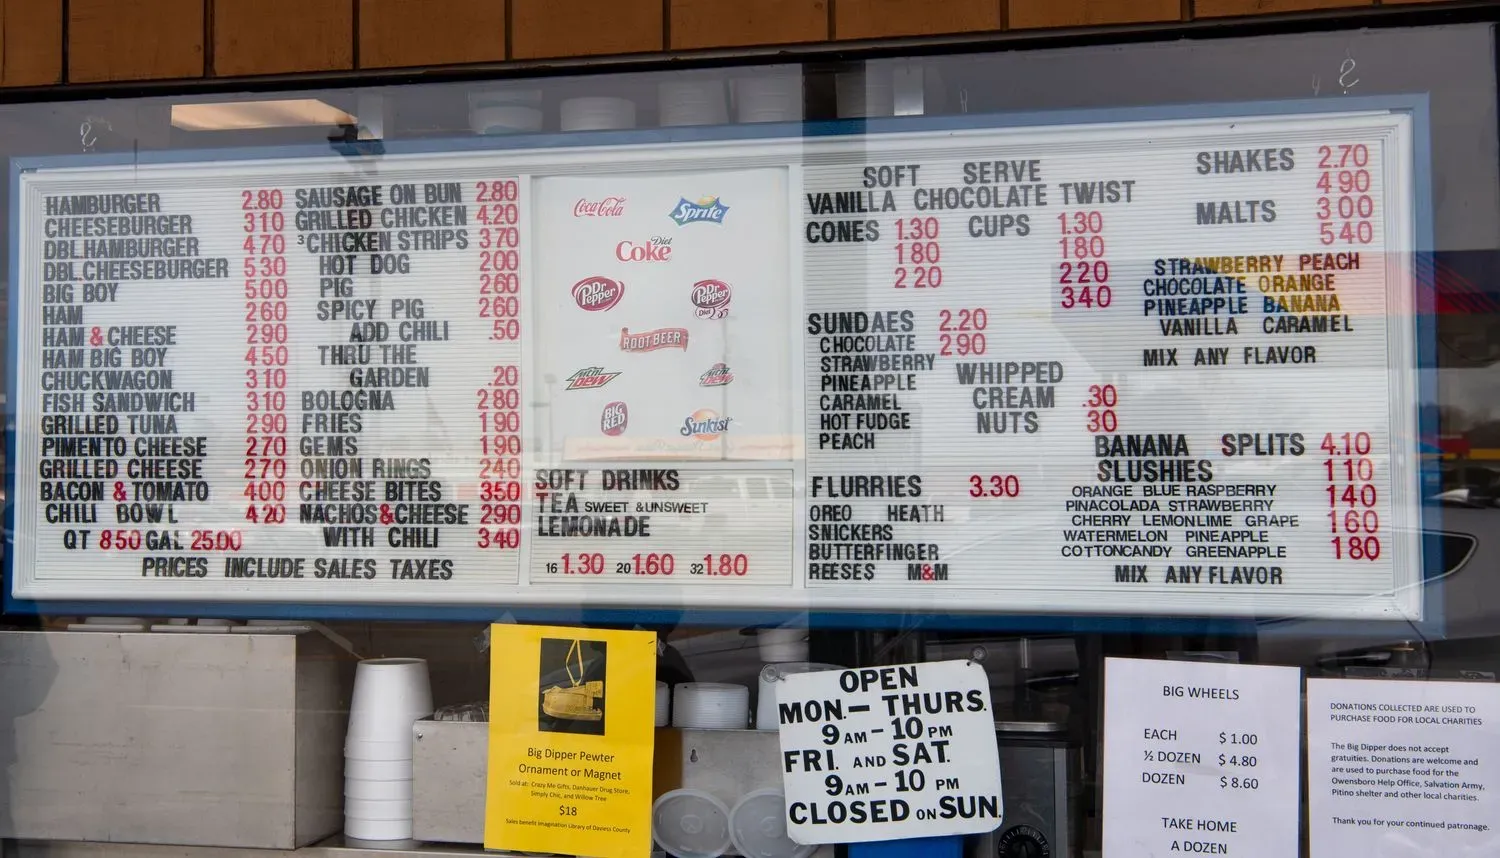 HAMBURGER 2.80
CHEESEBURGER 310
DBL.HAMBURGER 470
DBL.CHEESEBURGER 530
BIG BOY 500
HAM 260
HAM & CHEESE 290
HAM BIG BOY 450
CHUCKWAGON 310
FISH SANDWICH 310
GRILLED TUNA 290
PIMENTO CHEESE 270
GRILLED CHEESE 270
BACON & TOMATO 400
CHILI BOWL 420
QT 850 GAL 25.00
SAUSAGE ON BUN 2.80
GRILLED CHICKEN 4.20
3 CHICKEN STRIPS 370
HOT DOG 200
PIG 260
SPICY PIG 260
ADD CHILI .50
THRU THE
GARDEN .20
BOLOGNA 280
FRIES 190
GEMS 190
ONION RINGS 240
CHEESE BITES 350
NACHOS&CHEESE 290
WITH CHILI 340
PRICES INCLUDE SALES TAXES
Coca-Cola
Sprite
Diet
Coke
Dr Pepper
Dr Pepper
Diet
ROOT BEER
Mtn Dew
Mtn Dew
BIG RED
Sunkist
SOFT DRINKS
TEA SWEET & UNSWEET
LEMONADE
16 1.30 20 1.60 32 1.80
SOFT SERVE
VANILLA CHOCOLATE TWIST
CONES 1.30 CUPS 1.30
180 180
220 220
340
SUNDAES 2.20
CHOCOLATE 290
STRAWBERRY
PINEAPPLE
CARAMEL
HOT FUDGE
PEACH
WHIPPED
CREAM .30
NUTS 30
FLURRIES 3.30
OREO HEATH
SNICKERS
BUTTERFINGER
REESES M&M
SHAKES 2.70
490
MALTS 300
540
STRAWBERRY PEACH
CHOCOLATE ORANGE
PINEAPPLE BANANA
VANILLA CARAMEL
MIX ANY FLAVOR
BANANA SPLITS 4.10
SLUSHIES 110
ORANGE BLUE RASPBERRY 140
PINACOLADA STRAWBERRY
CHERRY LEMONLIME GRAPE 160
WATERMELON PINEAPPLE
COTTONCANDY GREENAPPLE 180
MIX ANY FLAVOR
Big Dipper Pewter
Ornament or Magnet
Sold at: Crazy Me Gifts, Danhauer Drug Store,
Simply Chic, and Willow Tree
$18
Sales benefit Imagination Library of Daviess County
OPEN
MON.—THURS.
9AM-10PM
FRI. AND SAT.
9AM-10 PM
CLOSED ON SUN.
BIG WHEELS
EACH $ 1.00
½ DOZEN $ 4.80
DOZEN $ 8.60
TAKE HOME
A DOZEN
DONATIONS COLLECTED ARE USED TO
PURCHASE FOOD FOR LOCAL CHARITIES
The Big Dipper does not accept
gratuities. Donations are welcome and
are used to purchase food for the
Owensboro Help Office, Salvation Army,
Pitino shelter and other local charities.
Thank you for your continued patronage.